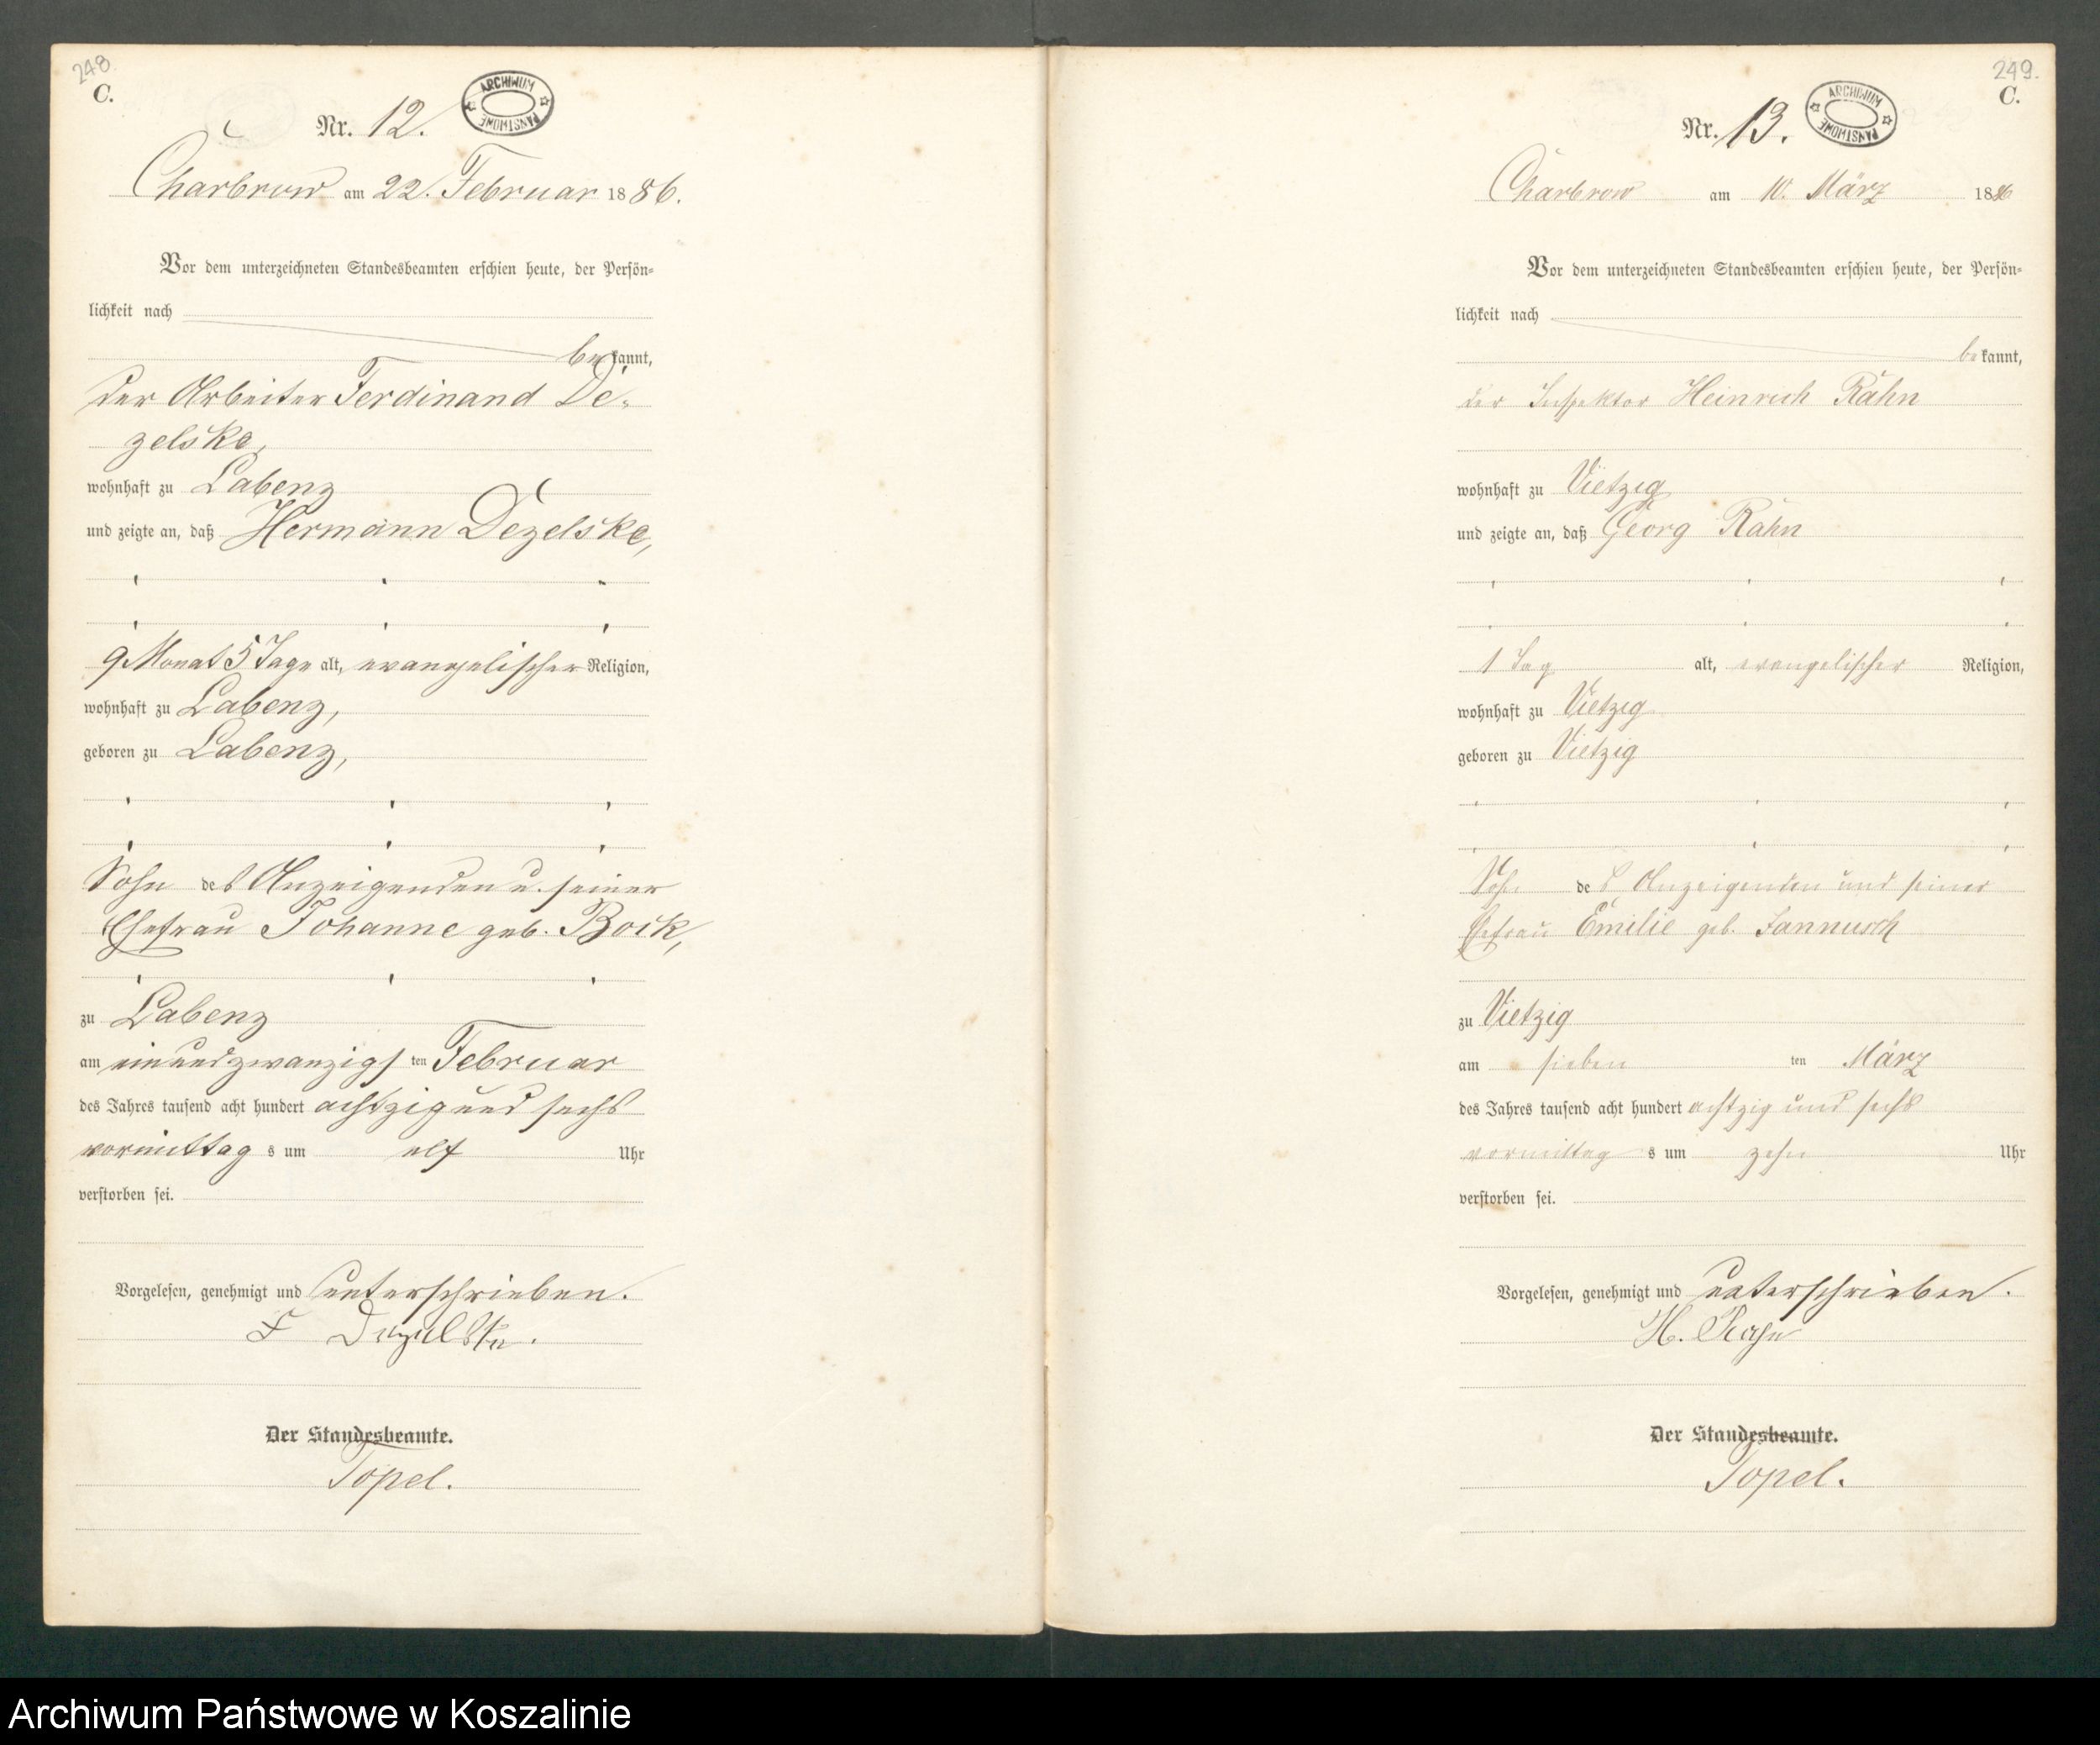 248.
C.
ARCHIWUM PAŃSTWOWE
Nr. 12.
Charbrow am 22. Februar 1886.
Vor dem unterzeichneten Standesbeamten erschien heute, der Persön-
lichkeit nach
bekannt,
der Arbeiter Ferdinand De-
zelske,
wohnhaft zu Labenz
und zeigte an, daß Hermann Dezelske,
9 Monat 5 Tage alt, evangelischer Religion,
wohnhaft zu Labenz,
geboren zu Labenz,
Sohn des Anzeigenden u. seiner
Ehefrau Johanne geb. Bock,
zu Labenz
am einundzwanzigsten Februar
des Jahres tausend acht hundert achtzig und sechs
vormittags um elf Uhr
verstorben sei.
Vorgelesen, genehmigt und unterschrieben.
F Dezelske.
Der Standesbeamte.
Topel.
249.
C.
ARCHIWUM PAŃSTWOWE
Nr. 13.
Charbrow am 10. März 1886
Vor dem unterzeichneten Standesbeamten erschien heute, der Persön-
lichkeit nach
bekannt,
der Inspektor Heinrich Rahn
wohnhaft zu Vietzig
und zeigte an, daß Georg Rahn
1 Tag alt, evangelischer Religion,
wohnhaft zu Vietzig
geboren zu Vietzig
Sohn des Anzeigenden und seiner
Ehefrau Emilie geb. Jannusch
zu Vietzig
am siebenten März
des Jahres tausend acht hundert achtzig und sechs
vormittags um zehn Uhr
verstorben sei.
Vorgelesen, genehmigt und unterschrieben.
H. Rahn
Der Standesbeamte.
Topel.
Archiwum Państwowe w Koszalinie